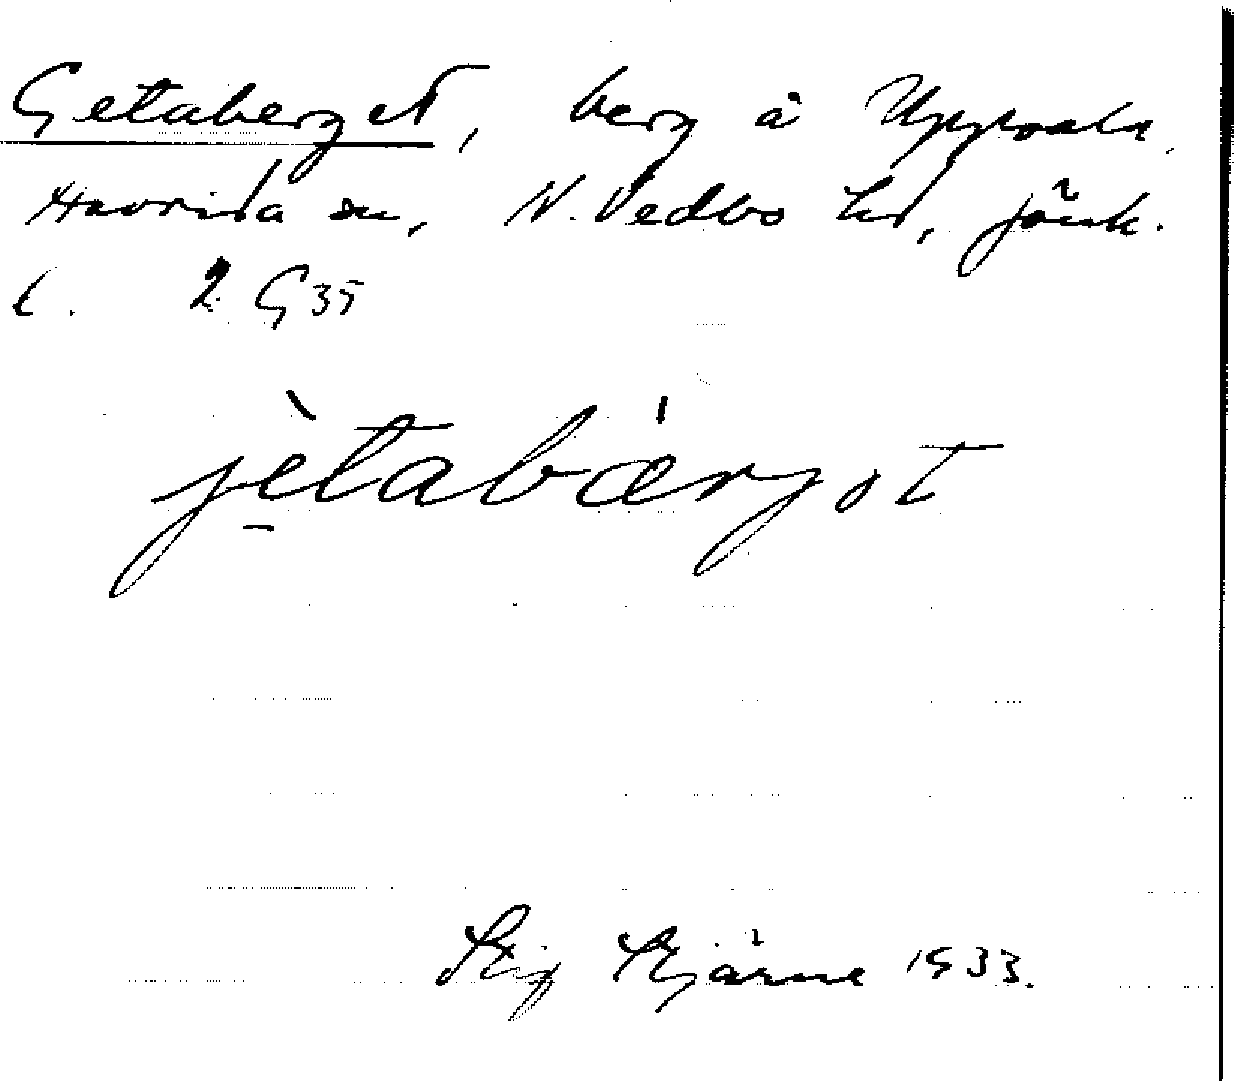 Getaberget, berg å Uppvala
Haurida sn, N. Vedbo hd, Jönk.
l. 2 G 35
jètabärjot
Stig Hjärne 1933.